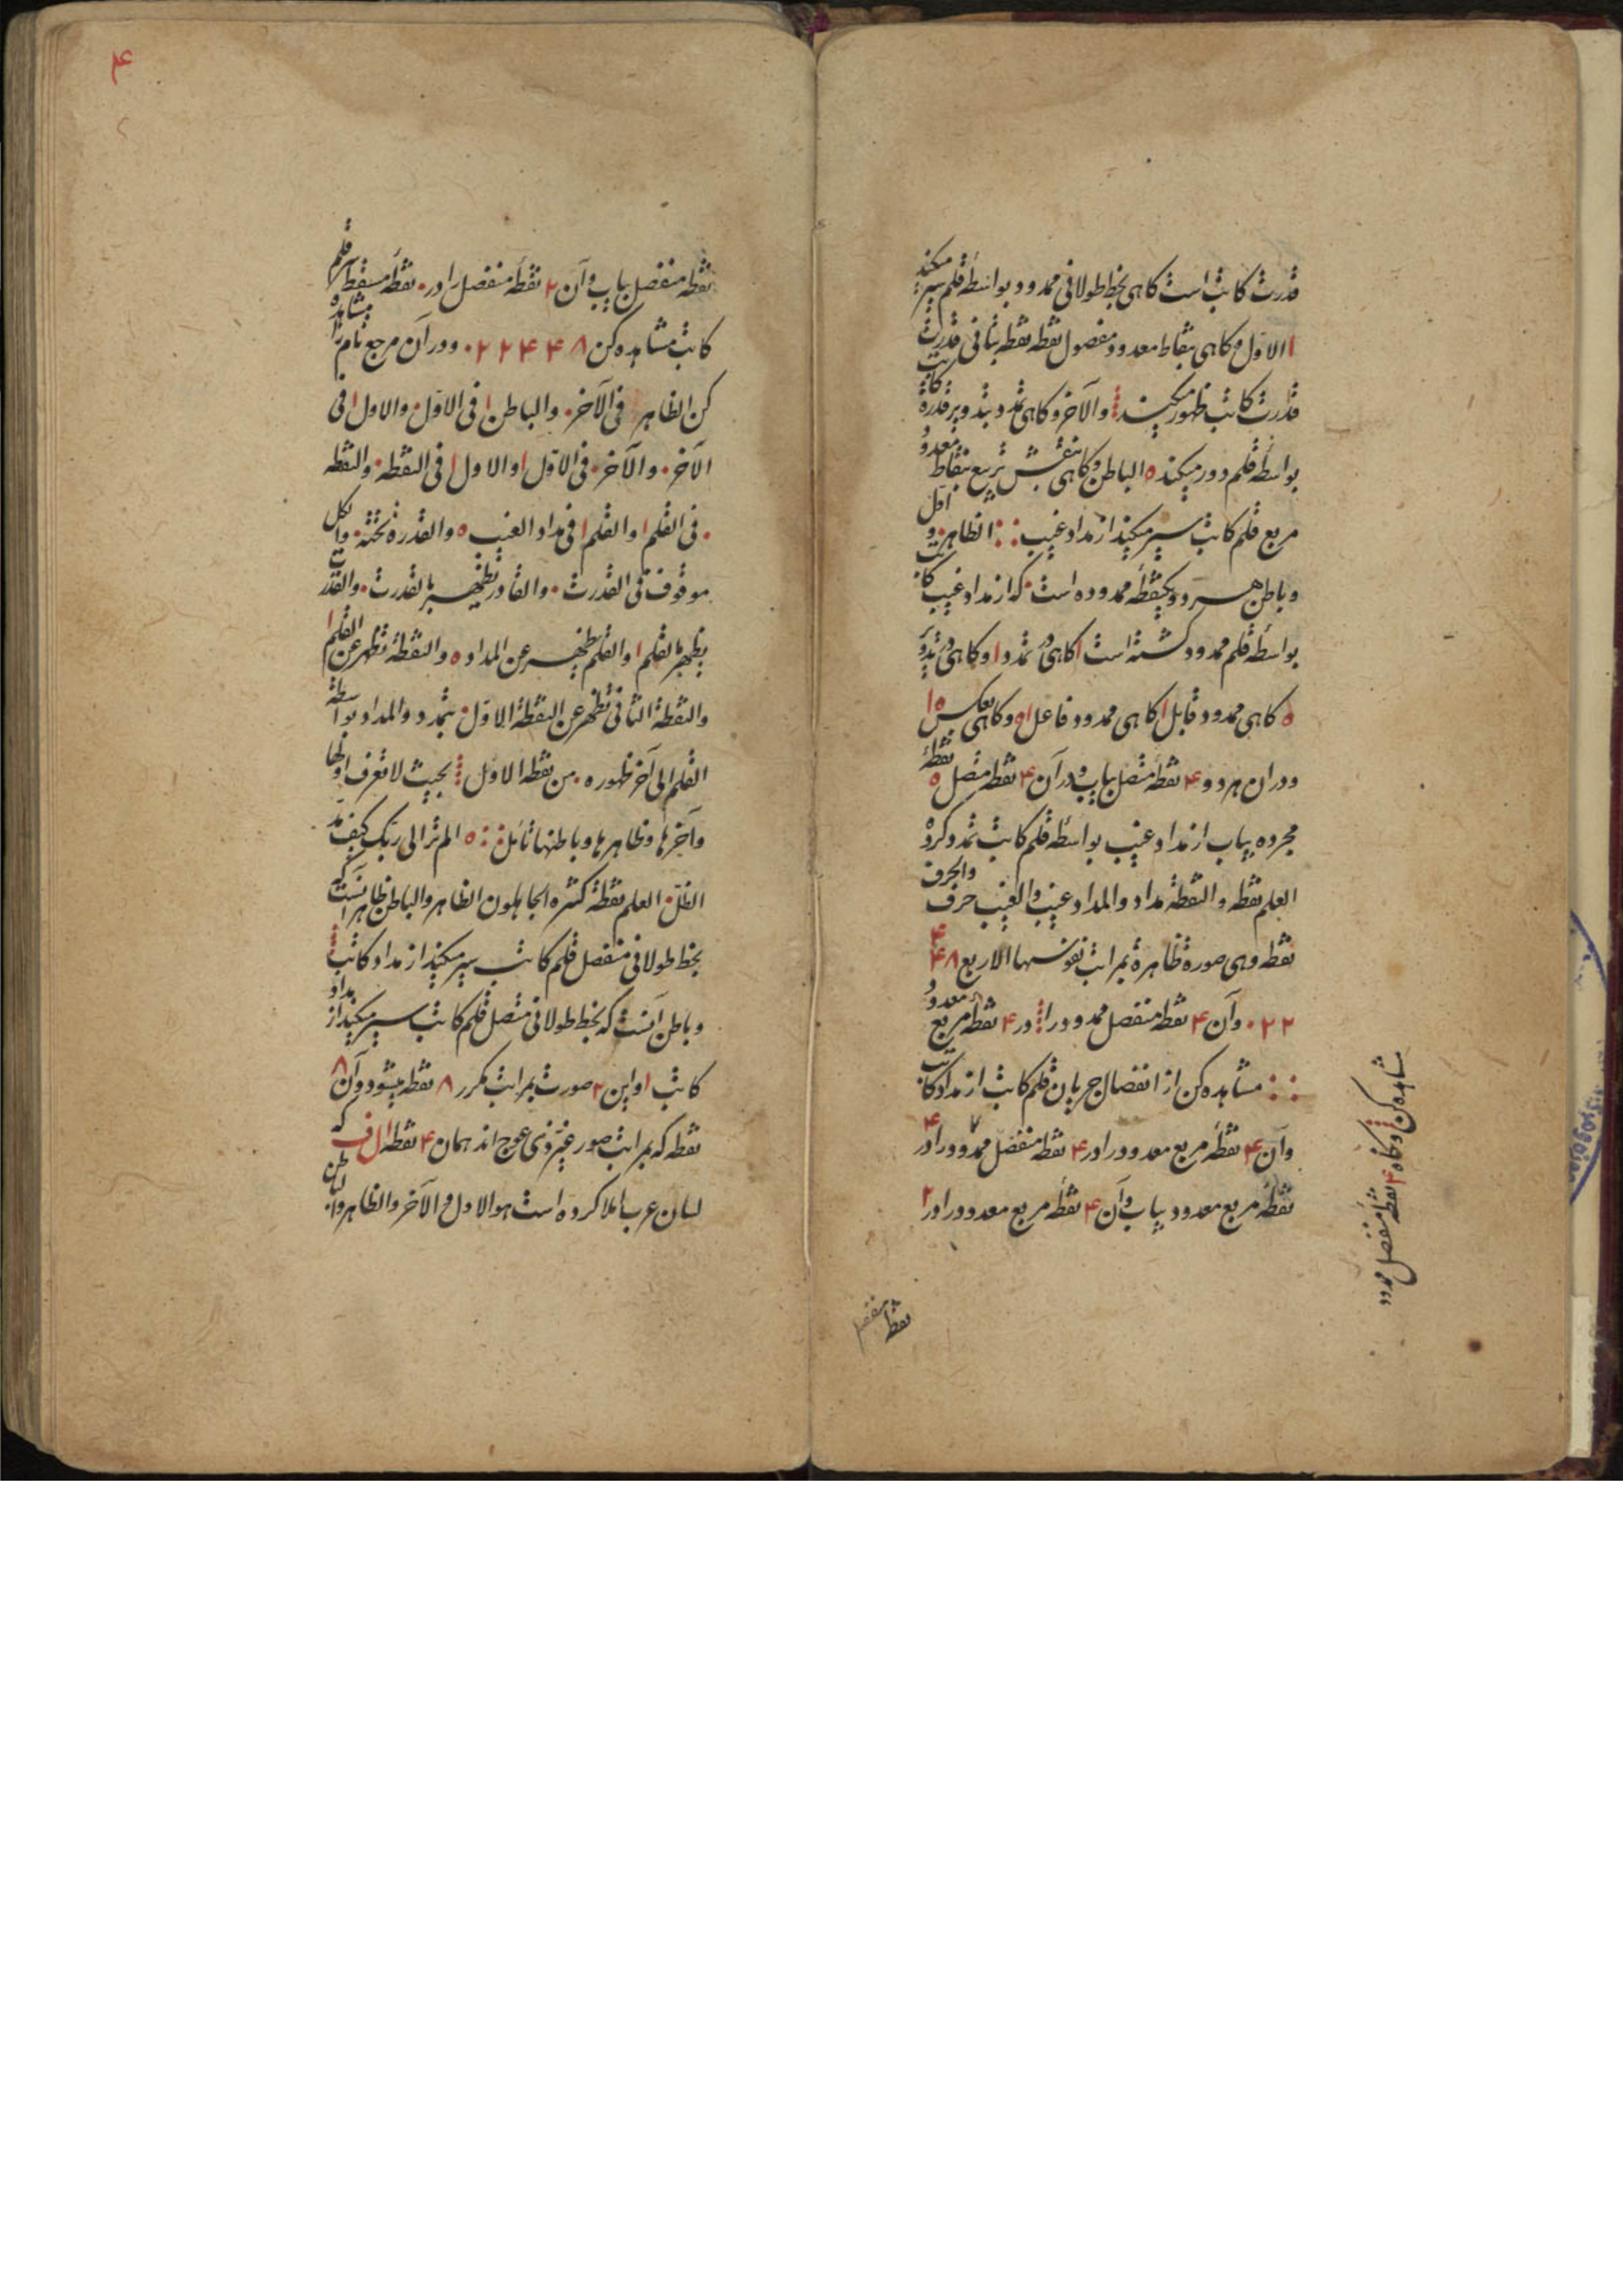 قدرت کاتب است کاهی بخط طولانی ممدود بواسطهٔ قلم سیر میکند
ا الاول و کاهی بنقاط معدود مفصول نقطه نقطه بثانی قدرت
قدرت کاتب ظهور میکند والآخر و کاهی تمدد بتدویر قدرة کاتب
بواسطهٔ قلم دور میکند ه الباطن و کاهی بنقش تربیع بنقاط معدود
مربع قلم کاتب سیر میکند از مداد غیب الظاهر و اول
و باطن هر دو یکنقطهٔ ممدوده است که از مداد غیب کاتب
بواسطهٔ قلم ممدود کشته است ا کاهی تمدد ا و کاهی تدویر
ه کاهی ممدود قابل ا کاهی ممدود فاعل اه و کاهی بعکس ه ا
و در ان هر دو ۴ نقطه متصل بیاب و در آن ۴ نقطه متصل ه نقطهٔ
مجرده بیاب از مداد غیب بواسطهٔ قلم کاتب تمدد کرده
العلم نقطه والنقطة مداد والمداد غیب والغیب حرف والحرف
نقطه وهی صورة ظاهرة بمراتب نقوشها الاربع ۸ ۴ ۴
۲ ۲ ۰ وآن ۴ نقطه منفصل ممدود را در ۴ نقطهٔ مربع معدود
مشاهده کن از انفصال جریان قلم کاتب از مداد کاتب
وآن ۴ نقطهٔ مربع معدود را در ۴ نقطه منفصل ممدود را در ۴
نقطهٔ مربع معدود بیاب وآن ۴ نقطهٔ مربع معدود را در ۲
مشاهده کن و کاه ۴ نقطهٔ منفصل ممدود
نقطهٔ منفصل
۴
نقطه منفصل بیاب وآن ۲ نقطهٔ منفصل را در ۰ نقطهٔ مسقط قلم
کاتب مشاهده کن ۸ ۴ ۴ ۲ ۲ ۰ و در آن مرجع تام را مشاهده
کن الظاهر فی الآخر ۰ والباطن ا فی الاول ۰ والاول ا فی
الآخر ۰ والآخر ۰ فی الاول ا والاول ا فی النقطه ۰ والنقطه
۰ فی القلم ا والقلم ا فی مداد الغیب ه والقدرة تحته ۰ والکل
موقوف فی القدرت ۰ والقادر یظهر بالقدرت ۰ والقدر
یظهر بالقلم ا والقلم یظهر عن المداد ه والنقطة تظهر عن القلم ا
والنقطة الثانی تظهر عن النقطة الاول ۰ یتمدد والمداد بواسطة
القلم الی آخر ظهوره ۰ من نقطة الاول بحیث لا تعرف اولها
وآخرها وظاهرها وباطنها تأمل ه الم تر الی ربک کیف مد
الظل ۰ العلم نقطة کثره الجاهلون الظاهر والباطن ظاهر آنست که
بخط طولانی منفصل قلم کاتب سیر میکند از مداد کاتب
و باطن آنست که بخط طولانی متصل قلم کاتب سیر میکند از مداد
کاتب ا و این ۲ صورت بمراتب مکرر ۸ نقطه میشود وآن ۸
نقطه که بمراتب صور غیر ذی عوج اند همان ۴ نقطه ا ل ف که
لسان عرب املا کرده است هو الاول والآخر والظاهر والباطن